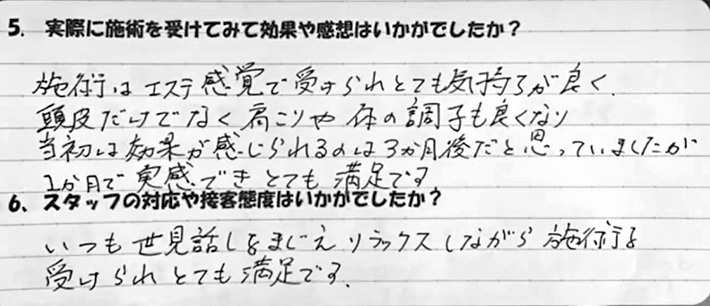 5. 実際に施術を受けてみて効果や感想はいかがでしたか？
施術はエステ感覚で受けられとても気持ちが良く、
頭皮だけでなく肩こりや体の調子も良くなり
当初は効果が感じられるのは3か月後だと思っていましたが
1か月で実感できとても満足です
6. スタッフの対応や接客態度はいかがでしたか？
いつも世見話しをまじえリラックスしながら施術を
受けられとても満足です。